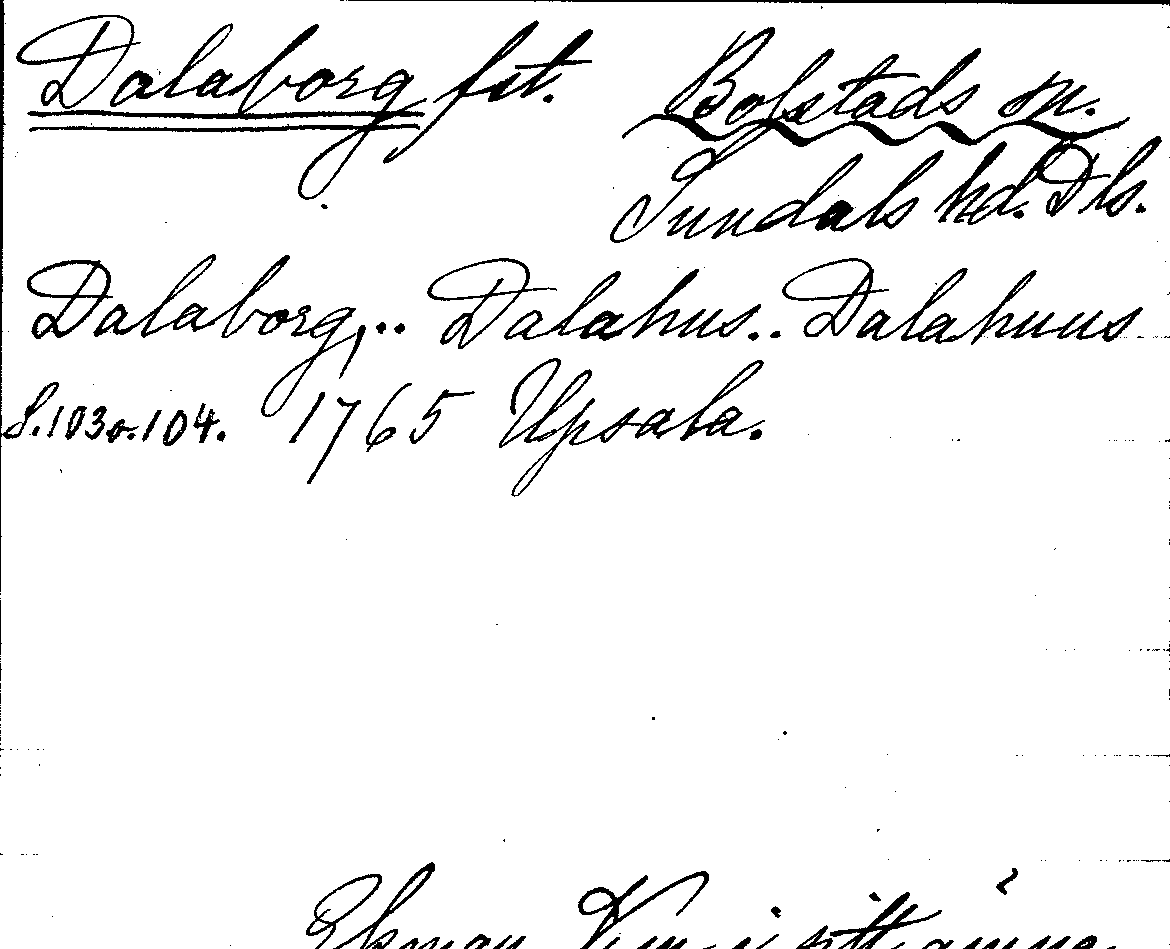 Dalaborg fst. Bolstads sn.
Sundals hd. Dls.
Dalaborg,.. Dalahus.. Dalahuus
S.103 o. 104. 1765 Upsala.
Ekman i sitt ämne